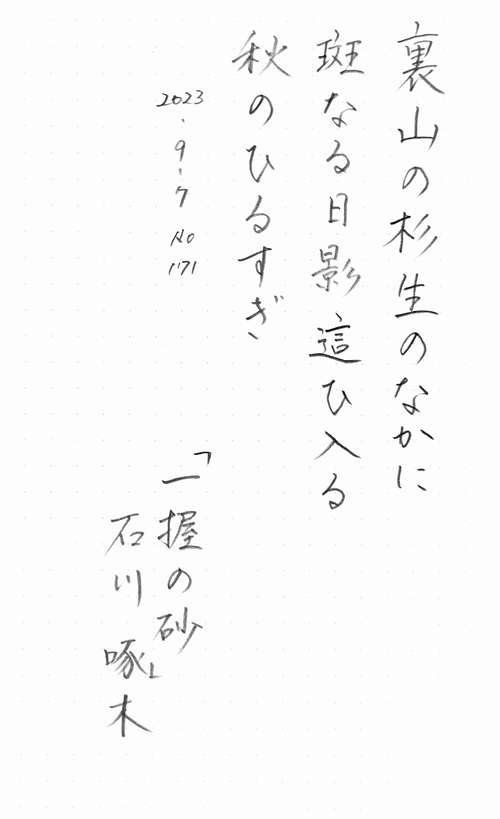 裏山の杉生のなかに
斑なる日影這ひ入る
秋のひるすぎ
2023.9.7 No 1171
「一握の砂」
石川啄木